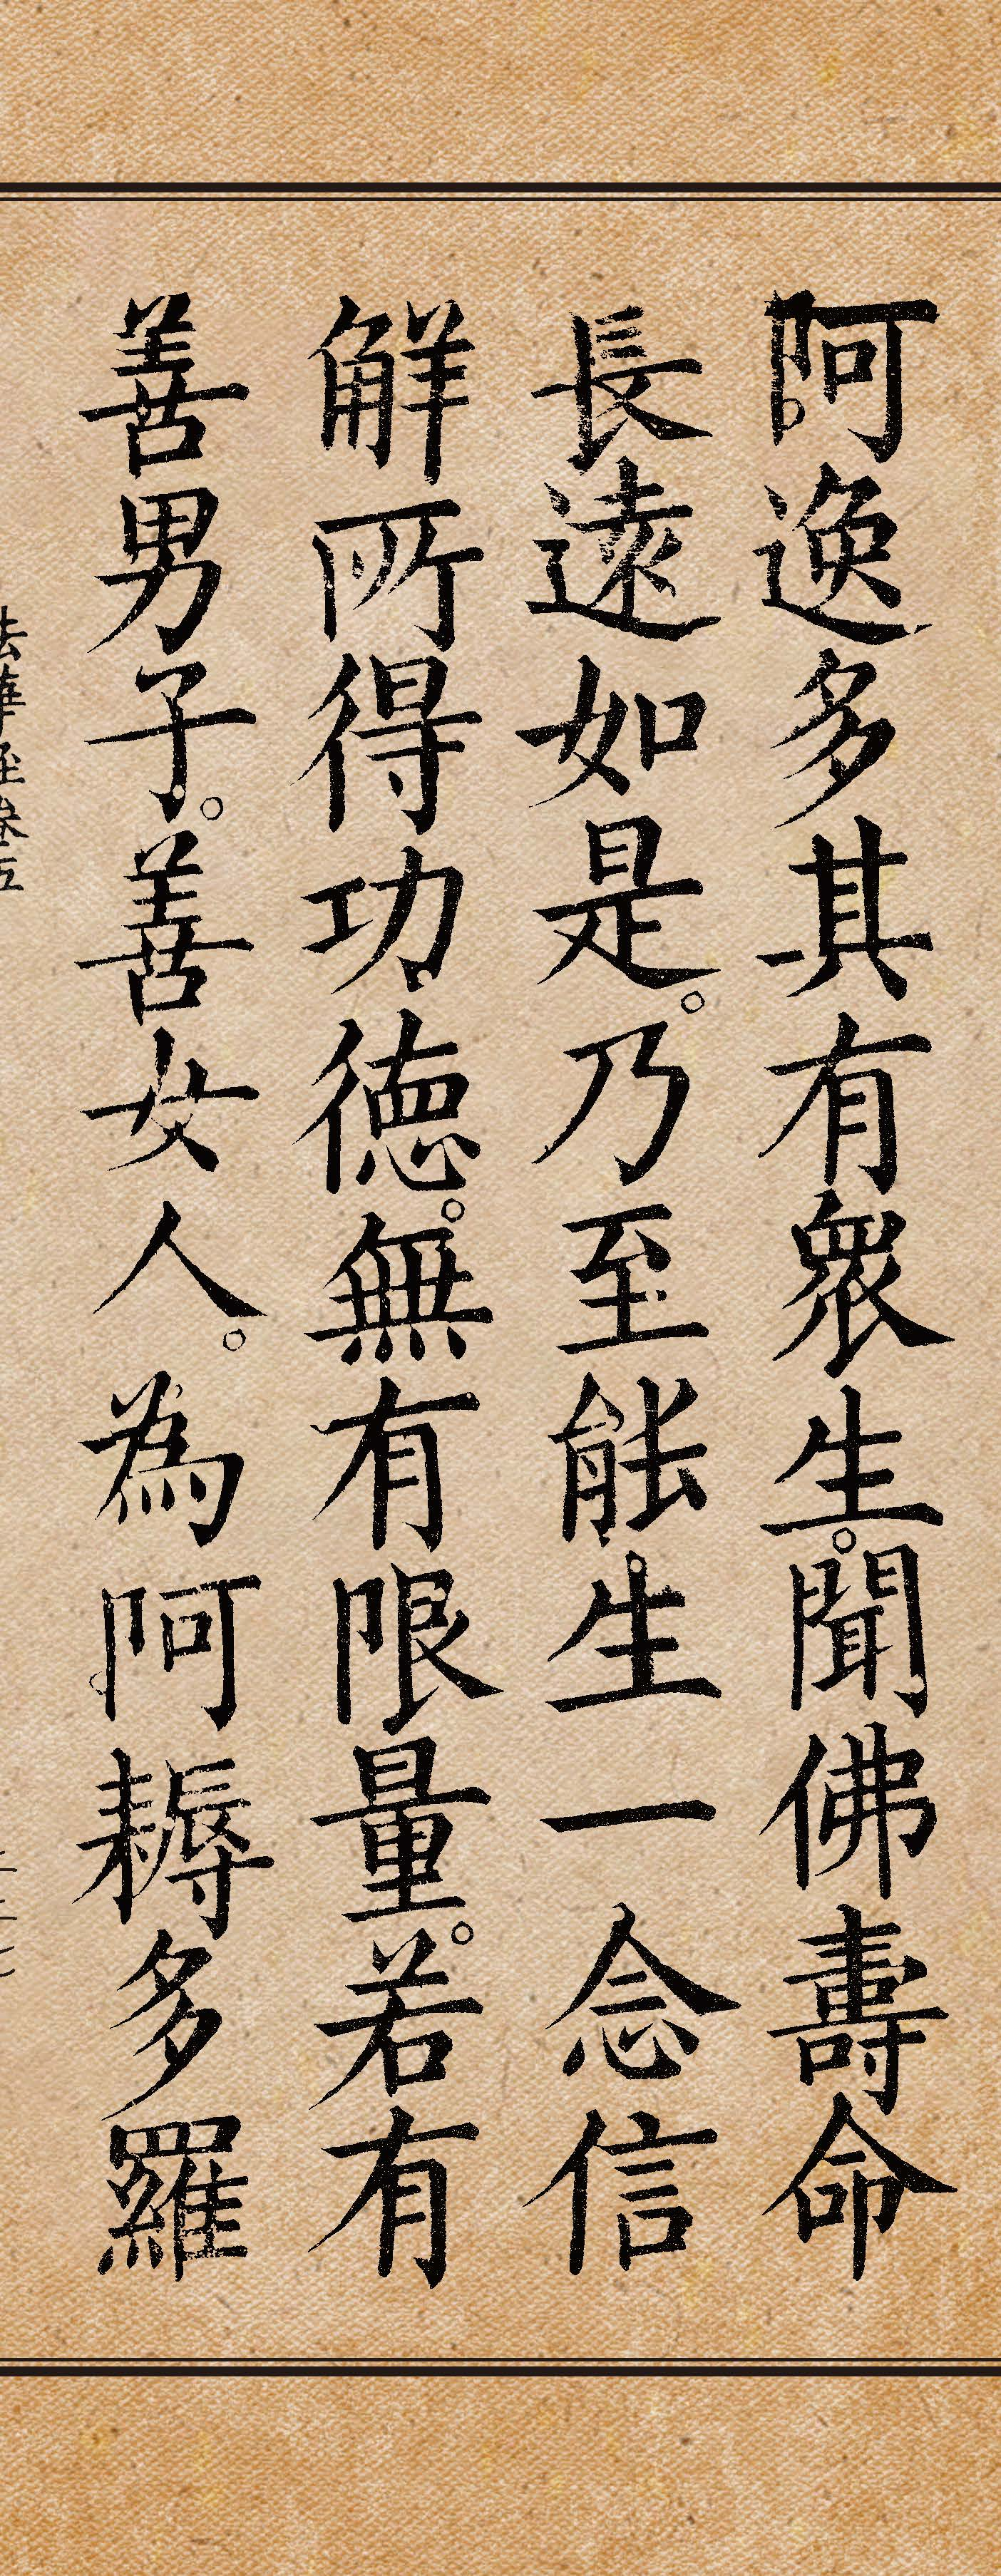 阿逸多其有眾生。聞佛壽命
長遠如是。乃至能生一念信
解所得功德。無有限量。若有
善男子。善女人。為阿耨多羅
法華經卷五